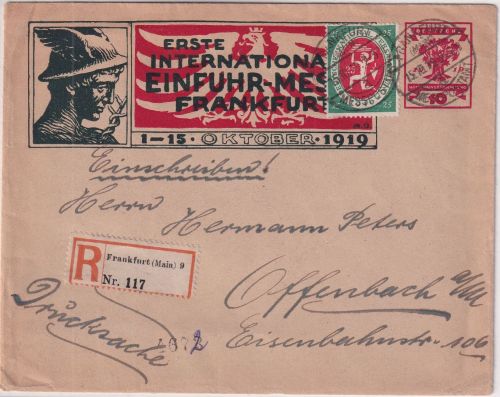 ERSTE
INTERNATIONA
EINFUHR-MES
FRANKFUR
1-15 · OKTOBER · 1919
25
25
10
Einschreiben!
Herrn Hermann Peters
Offenbach a/M
Eisenbahnstr. 106
R
Frankfurt (Main) 9
Nr. 117
Drucksache